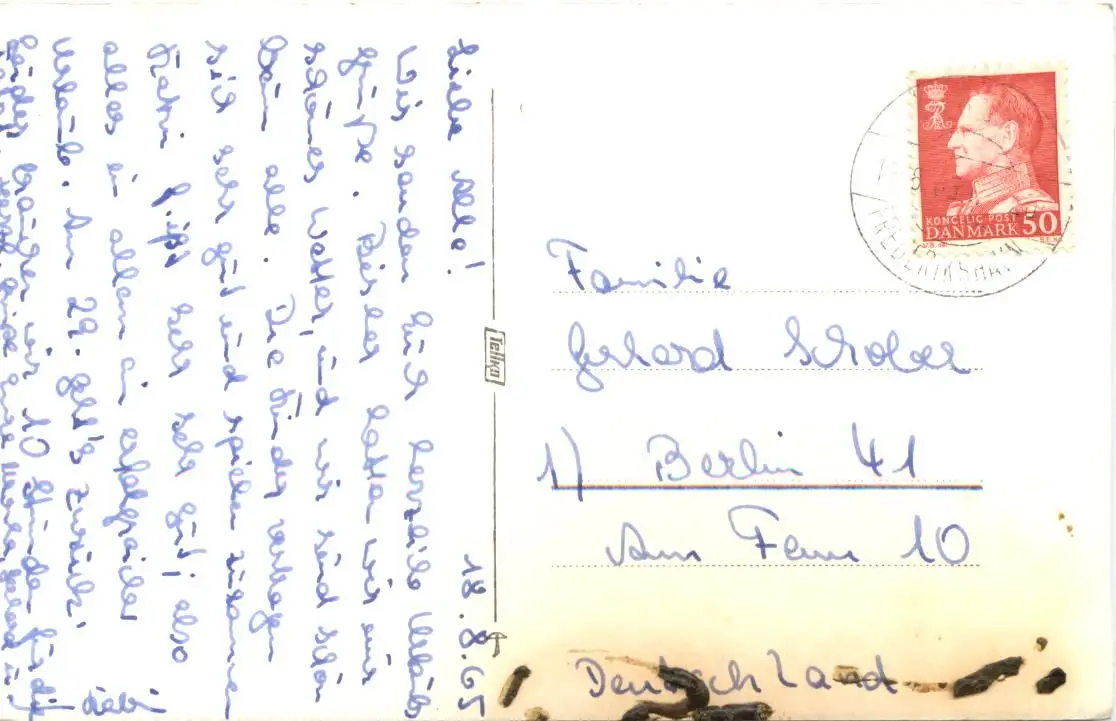 Liebe Alle! 18.8.65
Wir senden Euch herzliche Urlaubs
grüße. Bisher hatten wir nur
schönes Wetter, und wir sind schön
braun alle. Die Kinder vertragen
sich sehr gut und spielen zusammen
Katrin ißt sehr sehr gut; also
alles in allem ein erholsamer
Urlaub. Am 29. geht's zurück.
Leider brauchen wir 10 Stunden für die
Tellko
KONGELIG POST
DANMARK 50
FREDERIKSHAVN
Familie
Gerhard Schober
1) Berlin 41
Am Fenn 10
Deutschland